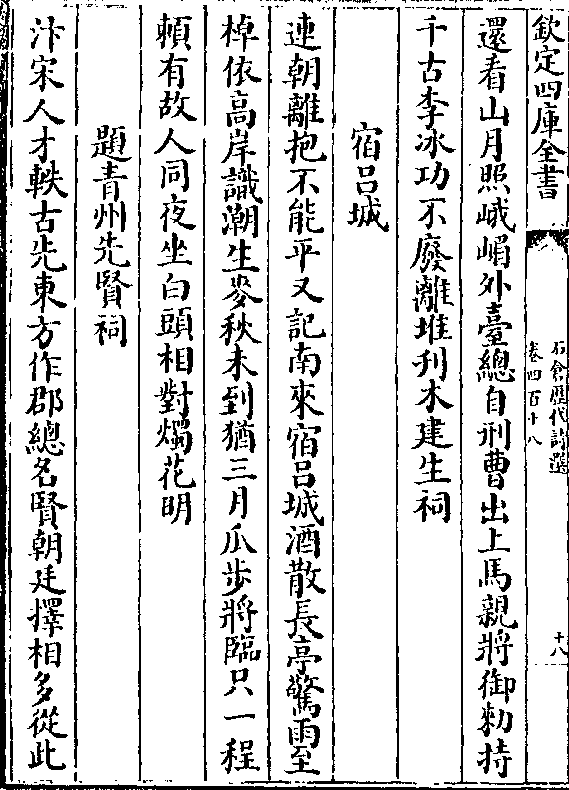 欽定四庫全書
石倉歷代詩選
卷四百十八
十八
還看山月照峨嵋外臺總自刑曹出上馬親將御勅持
千古李冰功不廢離堆刋木建生祠
宿呂城
連朝離抱不能平又記南來宿呂城酒散長亭驚雨至
棹依高岸識潮生麥秋未到猶三月瓜步將臨只一程
頼有故人同夜坐白頭相對燭花明
題青州先賢祠
汴宋人才軼古先東方作郡總名賢朝廷擇相多從此